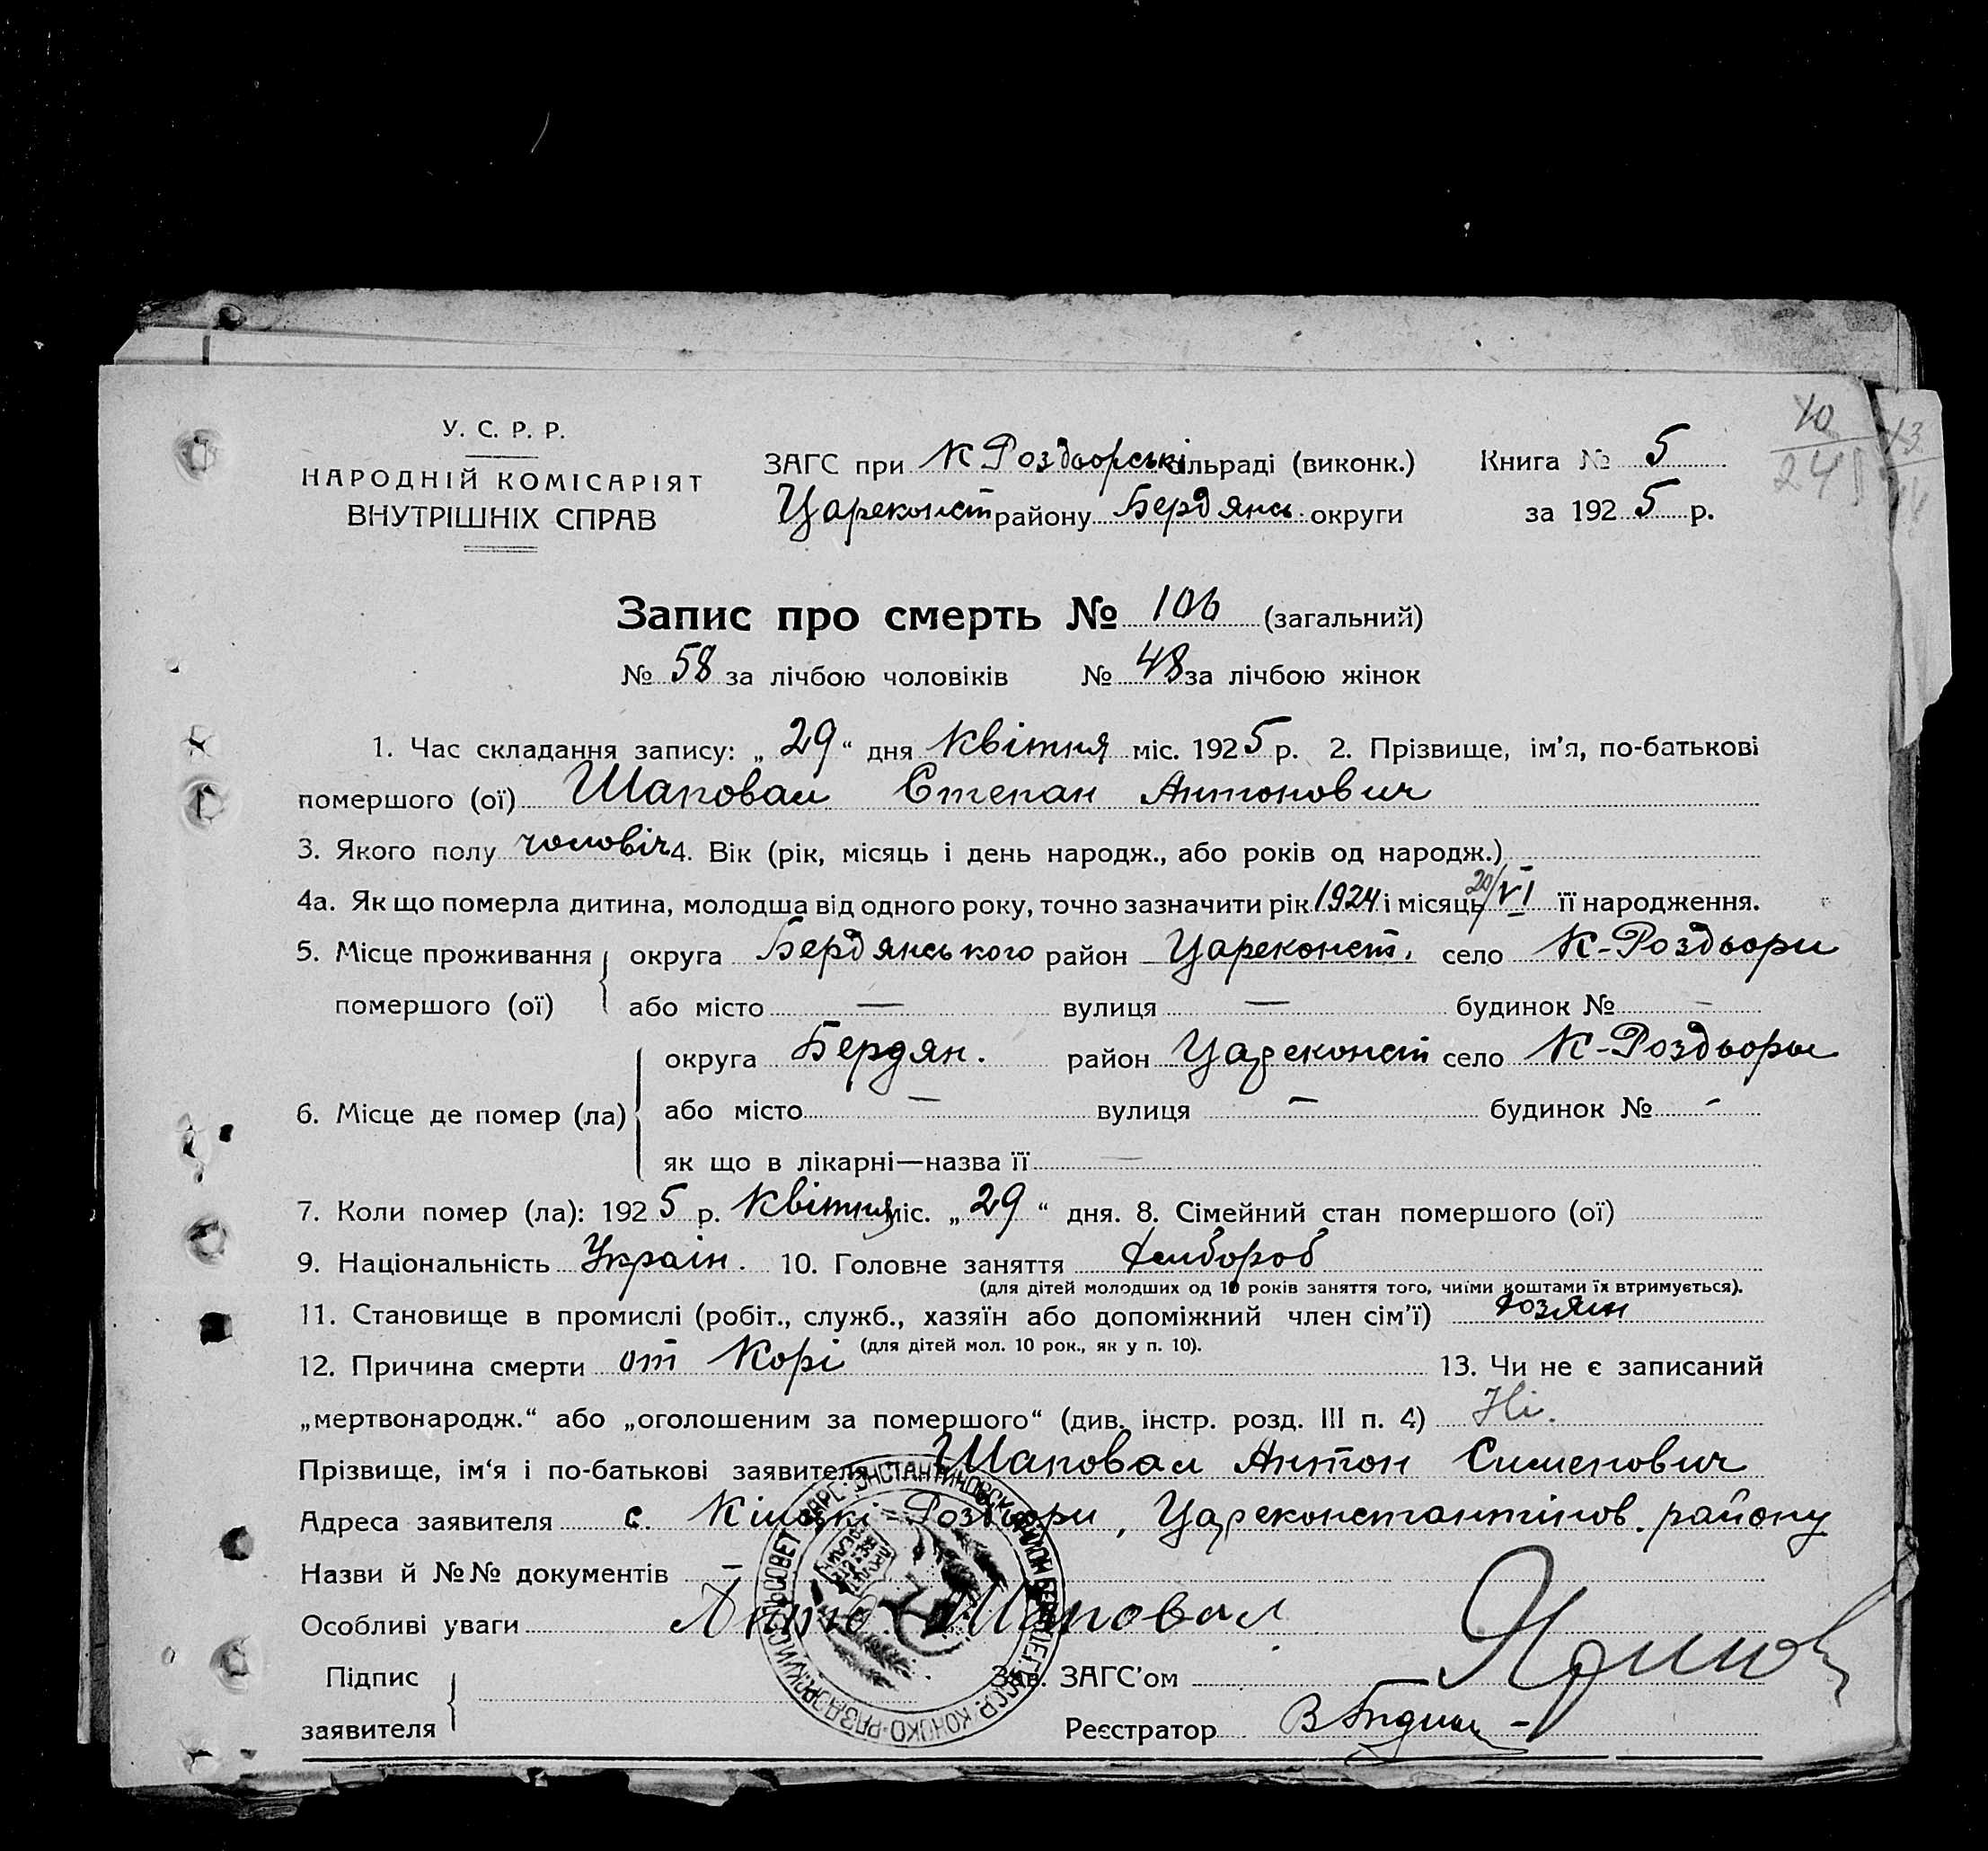 У. С. Р. Р.
НАРОДНІЙ КОМІСАРІЯТ
ВНУТРІШНІХ СПРАВ
ЗАГС при К Роздьорські сільраді (виконк.)
Цареконст району Бердянсь. округи
Книга № 5
за 1925 р.
10
24
13
14
Запис про смерть № 106 (загальний)
№ 58 за лічбою чоловіків № 48 за лічбою жінок
1. Час складання запису: „ 29 “ дня Квітня міс. 1925 р. 2. Прізвище, ім'я, по-батькові
помершого (ої) Шаповал Степан Антонович
3. Якого полу чоловіч 4. Вік (рік, місяць і день народж., або років од народж.)
4а. Як що померла дитина, молодша від одного року, точно зазначити рік 1924 і місяць 20/VI її народження.
5. Місце проживання округа Бердянського район Цареконст. село К-Роздьори
помершого (ої) або місто — вулиця — будинок № –
округа Бердян. район Цареконст село К-Роздьоры
6. Місце де помер (ла) або місто — вулиця — будинок № -
як що в лікарні—назва її —
7. Коли помер (ла): 1925 р. Квітня міс. „ 29 “ дня. 8. Сімейний стан помершого (ої)
9. Національність Украін. 10. Головне заняття Хлібороб
(для дітей молодших од 10 років заняття того, чиїми коштами їх втримується).
11. Становище в промислі (робіт., служб., хазяїн або допоміжний член сім'ї) Хозяин
(для дітей мол. 10 рок., як у п. 10).
12. Причина смерти от Корі 13. Чи не є записаний
„мертвонародж.“ або „оголошеним за помершого“ (див. інстр. розд. III п. 4) Ні.
Прізвище, ім'я і по-батькові заявителя Шаповал Антон Сименович
Адреса заявителя с. Кінські Роздьори, Цареконстантінов. району
Назви й №№ документів –
Особливі уваги Шаповал
Підпис
заявителя
Зав. ЗАГС'ом
Реєстратор